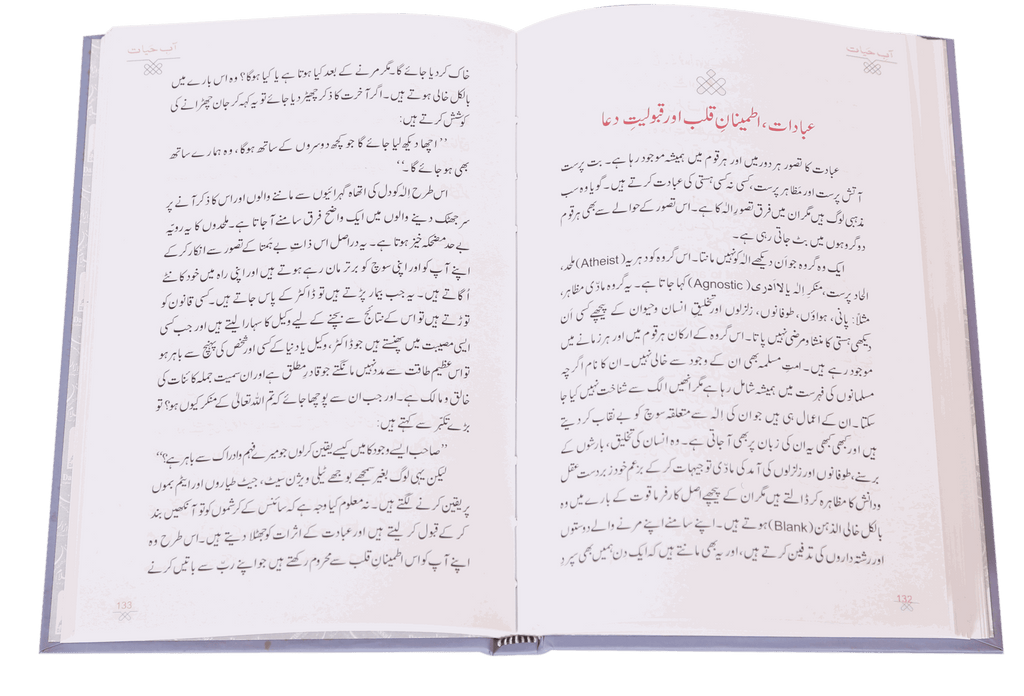 آب حیات
عبادات، اطمینانِ قلب اور قبولیتِ دعا
عبادت کا تصور ہر دور میں اور ہر قوم میں ہمیشہ موجود رہا ہے۔ بت پرست
آتش پرست اور مظاہر پرست، کسی نہ کسی ہستی کی عبادت کرتے ہیں۔ گویا وہ سب
مذہبی لوگ ہیں مگر ان میں فرق تصورِ الٰہ کا ہے۔ اس تصور کے حوالے سے بھی ہر قوم
دو گروہوں میں بٹ جاتی رہی ہے۔
ایک وہ گروہ جو اَن دیکھے الٰہ کو نہیں مانتا۔ اس گروہ کو دہریہ (Atheist) ملحد،
الحاد پرست، منکرِ الٰہ یا لاادری (Agnostic) کہا جاتا ہے۔ یہ گروہ مادّی مظاہر،
مثلاً: پانی، ہواؤں، طوفانوں، زلزلوں اور تخلیقِ انسان و حیوان کے پیچھے کسی اَن
دیکھی ہستی کا منشا و مرضی نہیں پاتا۔ اس گروہ کے ارکان ہر قوم میں اور ہر زمانے میں
موجود رہے ہیں۔ امتِ مسلمہ بھی ان کے وجود سے خالی نہیں۔ ان کا نام اگرچہ
مسلمانوں کی فہرست میں ہمیشہ شامل رہا ہے مگر انھیں الگ سے شناخت نہیں کیا جا
سکتا۔ ان کے اعمال ہی ہیں جو ان کی الٰہ سے متعلقہ سوچ کو بے نقاب کر دیتے
ہیں اور کبھی کبھی یہ ان کی زبان پر بھی آ جاتی ہے۔ وہ انسان کی تخلیق، بارشوں کے
برسنے، طوفانوں اور زلزلوں کی آمد کی مادّی توجیہات کر کے بزعمِ خود زبردست عقل
و دانش کا مظاہرہ کر ڈالتے ہیں مگر ان کے پیچھے اصل کارفرما قوت کے بارے میں وہ
بالکل خالی الذہن (Blank) ہوتے ہیں۔ اپنے سامنے اپنے مرنے والے دوستوں
اور رشتہ داروں کی تدفین کرتے ہیں، اور یہ بھی مانتے ہیں کہ ایک دن ہمیں بھی سپردِ
132
آب حیات
خاک کر دیا جائے گا۔ مگر مرنے کے بعد کیا ہوتا ہے یا کیا ہوگا؟ وہ اس بارے میں
بالکل خالی ہوتے ہیں۔ اگر آخرت کا ذکر چھیڑ دیا جائے تو یہ کہہ کر جان چھڑانے کی
کوشش کرتے ہیں:
’’اچھا دیکھ لیا جائے گا جو کچھ دوسروں کے ساتھ ہوگا، وہ ہمارے ساتھ
بھی ہو جائے گا۔‘‘
اس طرح الٰہ کو دل کی اتھاہ گہرائیوں سے ماننے والوں اور اس کا ذکر آنے پر
سر جھٹک دینے والوں میں ایک واضح فرق سامنے آ جاتا ہے۔ ملحدوں کا یہ رویّہ
بے حد مضحکہ خیز ہوتا ہے۔ یہ دراصل اس ذاتِ بے ہمتا کے تصور سے انکار کر کے
اپنے آپ کو اور اپنی سوچ کو برتر مان رہے ہوتے ہیں اور اپنی راہ میں خود کانٹے
اُگاتے ہیں۔ یہ جب بیمار پڑتے ہیں تو ڈاکٹر کے پاس جاتے ہیں۔ کسی قانون کو
توڑتے ہیں تو اس کے نتائج سے بچنے کے لیے وکیل کا سہارا لیتے ہیں اور جب کسی
ایسی مصیبت میں پھنستے ہیں جو ڈاکٹر، وکیل یا دنیا کے کسی اور شخص کی پہنچ سے باہر ہو
تو اس عظیم طاقت سے مدد نہیں مانگتے جو قادرِ مطلق ہے اور ان سمیت جملہ کائنات کی
خالق و مالک ہے۔ اور جب ان سے پوچھا جائے کہ تم اللہ تعالیٰ کے منکر کیوں ہو؟ تو
بڑے تکبّر سے کہتے ہیں:
’’صاحب ایسے وجود کا میں کیسے یقین کر لوں جو میرے فہم و ادراک سے باہر ہے؟‘‘
لیکن یہی لوگ بغیر سمجھے بوجھے ٹیلی ویژن سیٹ، جیٹ طیاروں اور ایٹم بموں
پر یقین کرنے لگتے ہیں۔ نہ معلوم کیا وجہ ہے کہ سائنس کے کرشموں کو تو آنکھیں بند
کر کے قبول کر لیتے ہیں اور عبادت کے اثرات کو جھٹلا دیتے ہیں۔ اس طرح وہ
اپنے آپ کو اس اطمینانِ قلب سے محروم رکھتے ہیں جو اپنے ربّ سے باتیں کرنے
133